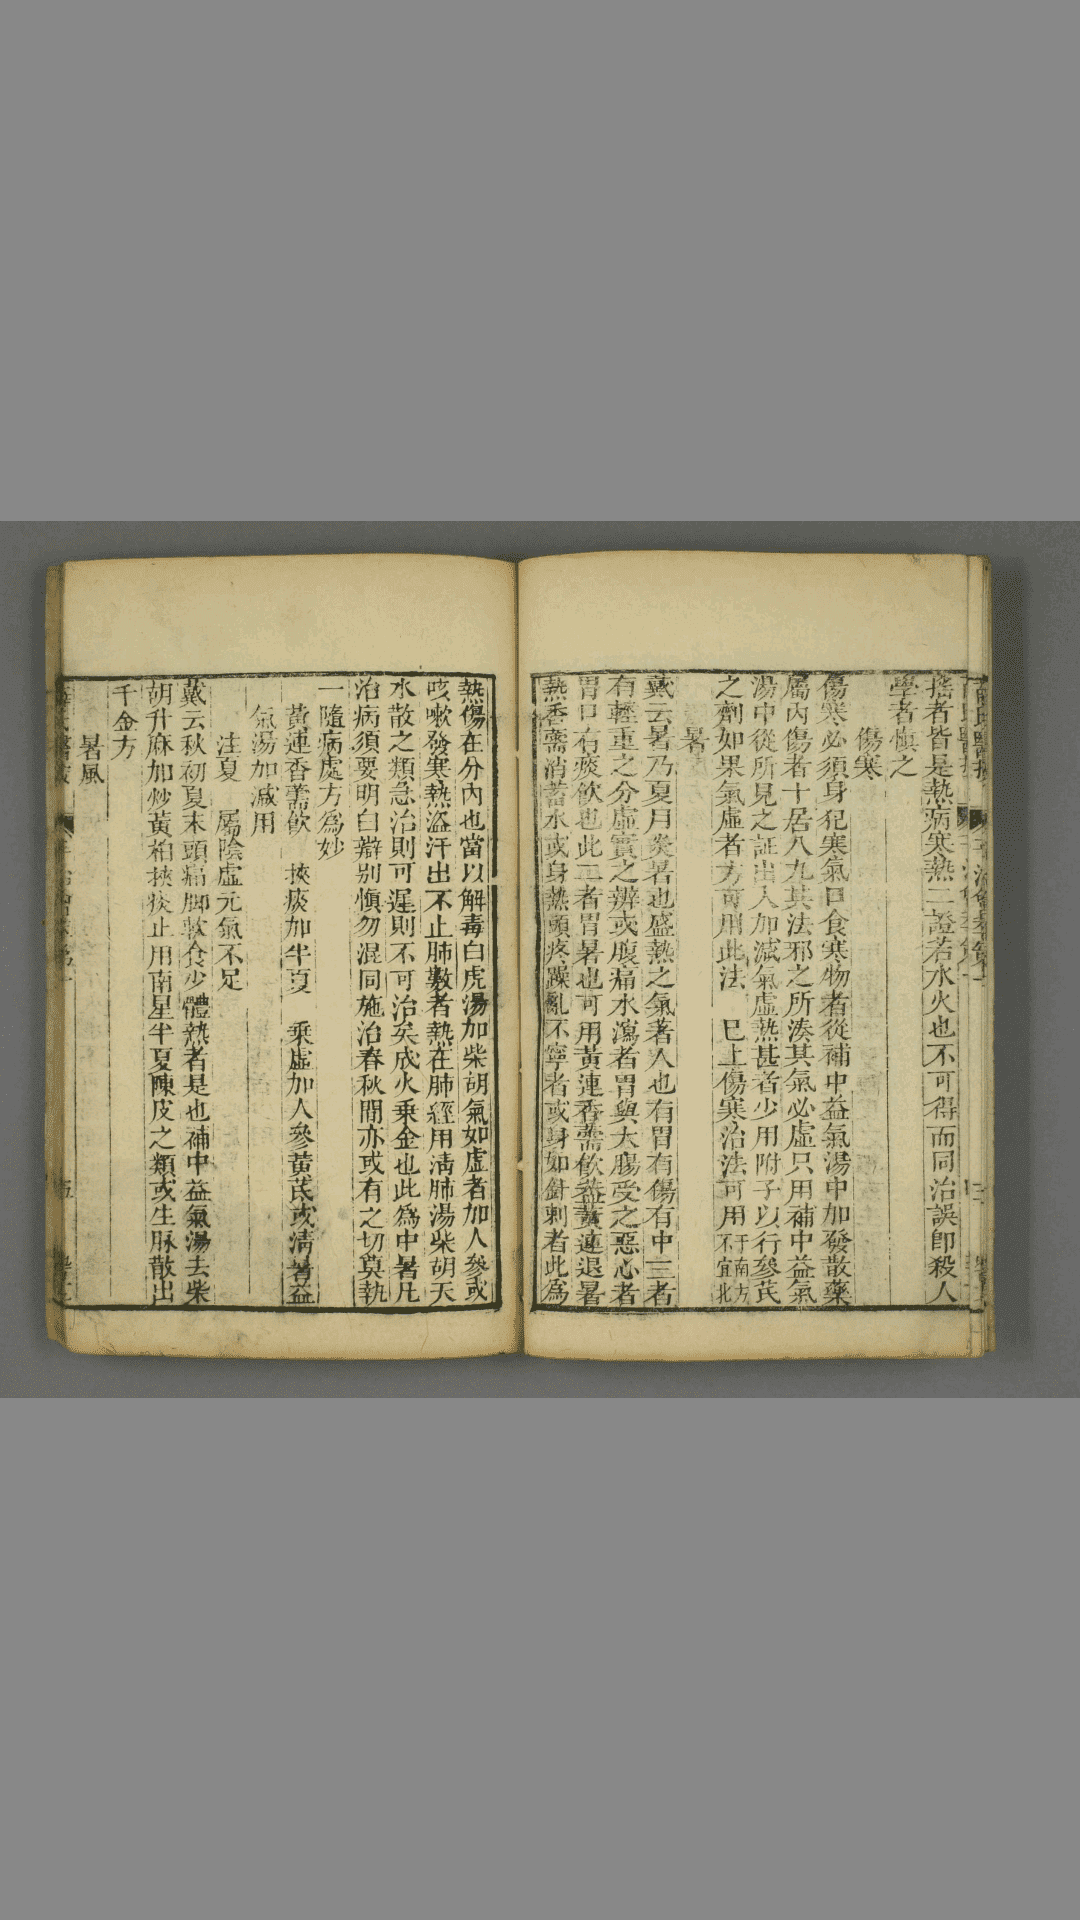 搐者皆是熱病寒熱二證若水火也不可得而同治誤卽殺人
學者愼之
傷寒
傷寒必須身犯寒氣口食寒物者從補中益氣湯中加發散藥
屬內傷者十居八九其法邪之所湊其氣必虛只用補中益氣
湯中從所見之証出入加減氣虛熱甚者少用附子以行參芪
之劑如果氣虛者方可用此法 巳上傷寒治法可用于南方不宜北
暑
戴云暑乃夏月炎暑也盛熱之氣著人也有冒有傷有中三者
有輕重之分虛實之辨或腹痛水瀉者胃與大腸受之惡心者
胃口有痰飮也此二者冒暑也可用黃連香薷飮益黃連退暑
熱香薷消蓄水或身熱頭疼躁亂不寧者或身如針刺者此爲
熱傷在分內也當以解毒白虎湯加柴胡氣如虛者加人參或
咳嗽發寒熱盜汗出不止肺數者熱在肺經用淸肺湯柴胡天
水散之類急治則可遲則不可治矣成火乘金也此爲中暑凡
治病須要明白辯別愼勿混同施治春秋間亦或有之切莫執
一隨病處方爲妙
黃連香薷飮 挾痰加半夏 乘虛加人參黃芪或淸暑益
氣湯加減用
注夏 屬陰虛元氣不足
戴云秋初夏末頭痛脚軟食少體熱者是也補中益氣湯去柴
胡升麻加炒黃柏挾痰止用南星半夏陳皮之類或生脉散出
千金方
暑風